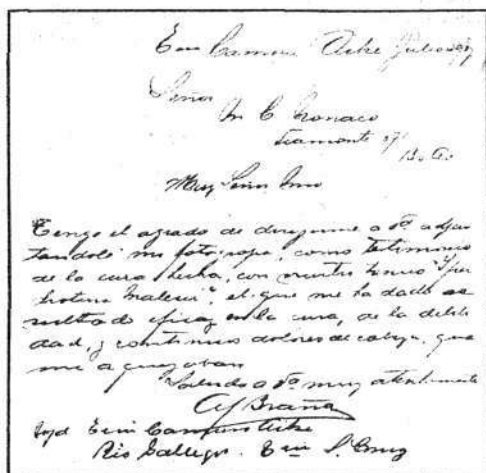 Señor
M. C. Monaco
Viamonte 871
Bs. As.
Muy Señor mio
Tengo el agrado de dirigirme a Vd adjun
tandole mi fotografia, como testimonio
de la cura hecha, con vuestro tonico "Iper
biotina Malesci", el que me ha dado re
sultado eficaz en la cura, de la debili
dad, y continuos dolores de cabeza, que
me aquejaban
Saludo a Vd muy atentamente
Braña
Rio Gallegos. S. Cruz